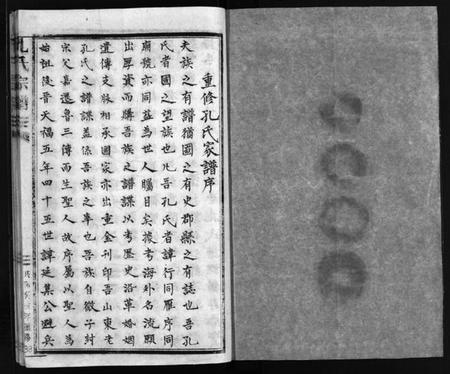 重修孔氏家譜序
夫族之有譜猶國之有史郡縣之有誌也吾孔
氏者國之望族也凡吾孔氏者諱行同雁序同
廟號亦同益為世人矚目矣據考海外名流願
出厚資而購吾族之譜諜以考歷史沿革婚姻
遺傳支脉相承國家亦出重金刊印吾山東老
孔氏之譜諜蓋係吾族之幸也吾族自微子封
宋父嘉遷魯三傳而生聖人故序屬以聖人為
始祖後晉天福五年四十五世諱延集公避兵